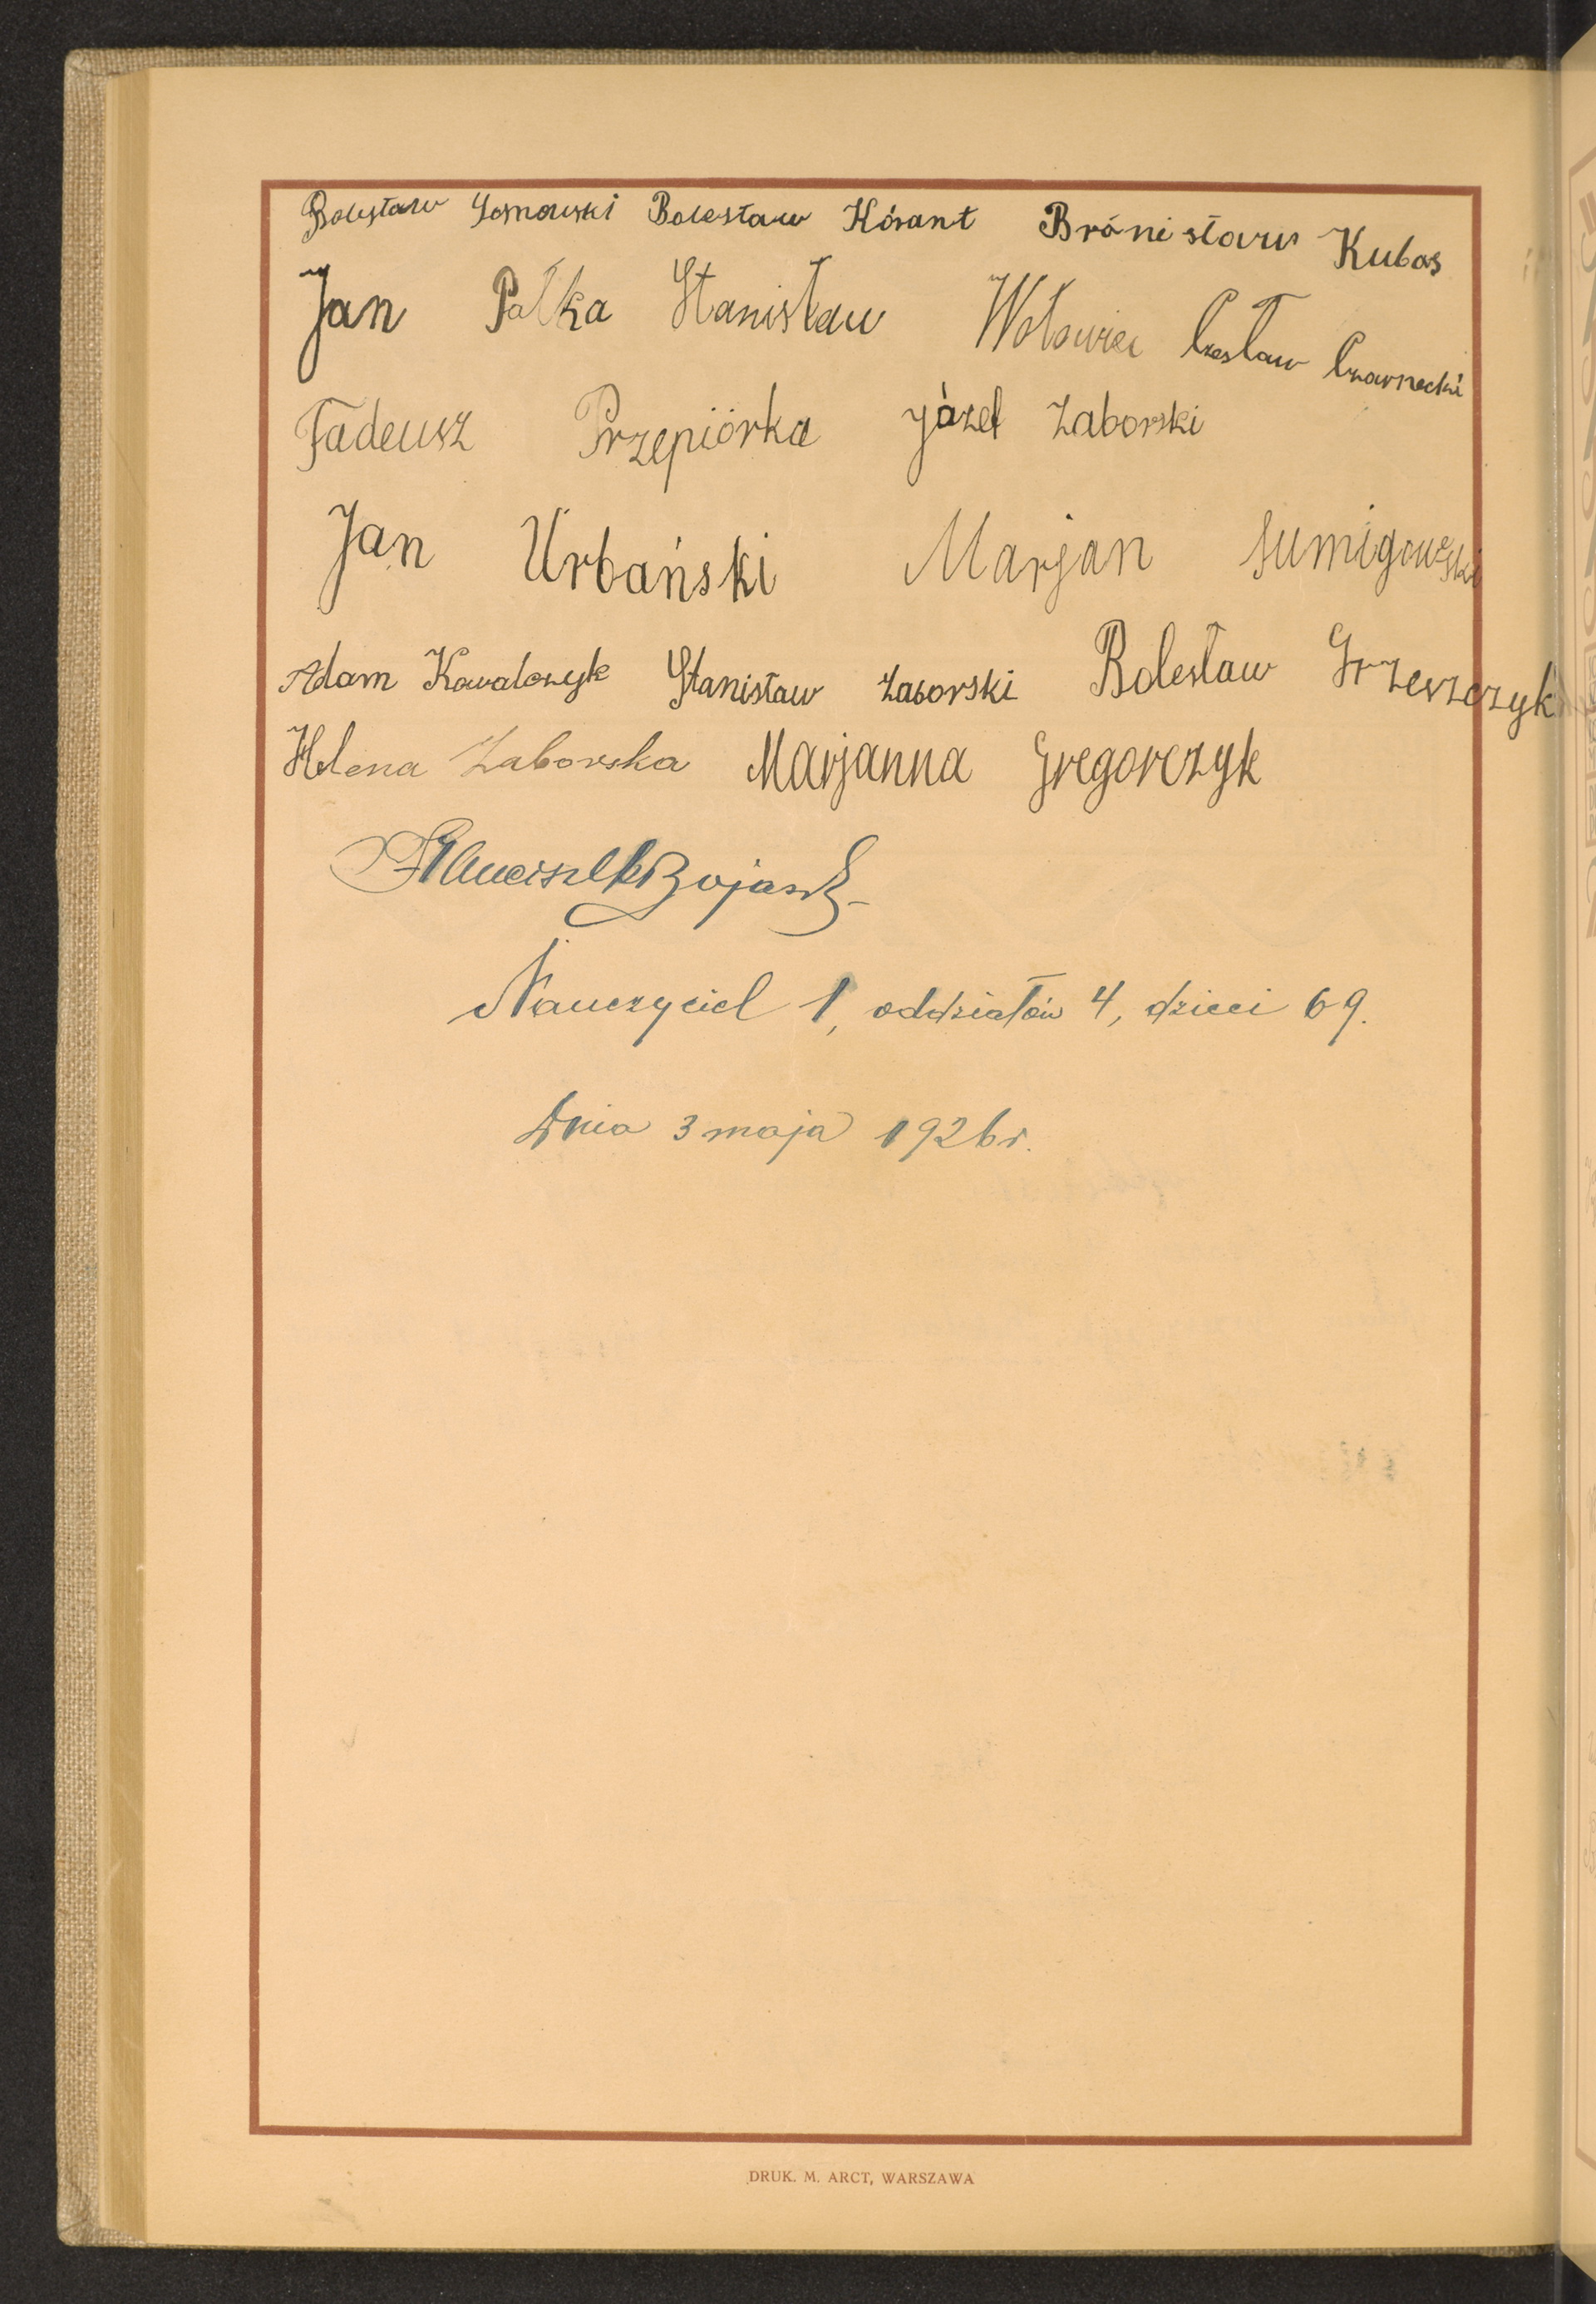 Bolesław Sosnowski Bolesław Kórant Brónisław Kubas
Jan Pałka Stanisław Wołowiec Czesław Czarnecki
Tadeusz Przepiórka Józef Zaborski
Jan Urbański Marjan Sumigowski
Adam Kowalczyk Stanisław Zaborski Bolesław Grzeszczyk
Helena Zaborska Marjanna Gregorczyk
Franciszek
Nauczyciel 1, oddziałów 4, dzieci 69.
Dnia 3 maja 1926 r.
DRUK. M. ARCT, WARSZAWA